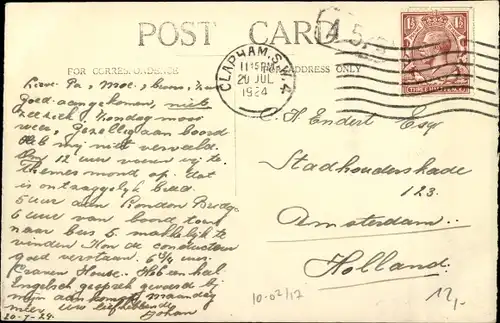 POST CARD
FOR CORRESPONDENCE
FOR ADDRESS ONLY
CLAPHAM. S.W.4
11.15 PM
20 JUL
1924
THREE HALFPENCE
Lieve Pa, Moe,
Goed aangekomen, niet
zeeziek, Zondag mooi
weer, Gezellig aan boord
Heb mij niet verveeld.
12 uur voeren wij te
Themesmond op. dat
is ontzaggelijk breed.
5 uur aan London Bridge
6 uur van boord toen
naar bus 5 makkelijk te
vinden Kon de conducteur
goed verstaan. 6 3/4 uur
Craven House. Heb een hal.
Engelsch gesprek gevoerd bij
mijn aankomst maandag
meer uw liefhebbende
Johan
20-7-24.
C. H. Endert Esq
Stadhouderskade
123.
Amsterdam.
Holland.
10-02/12
12,-